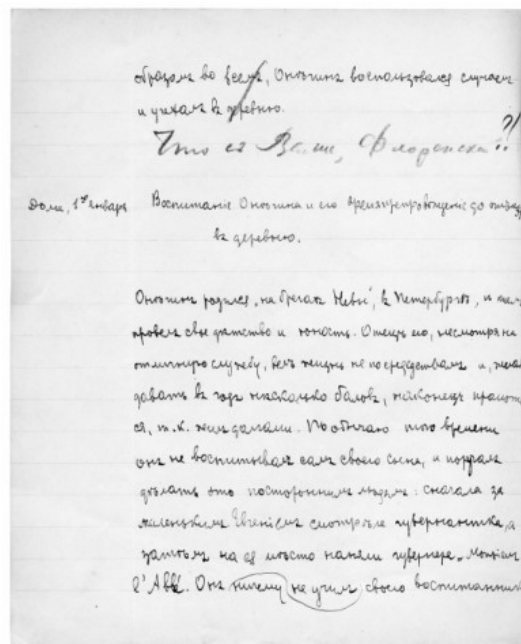 образомъ во всемъ, Онѣгинъ воспользовался случаемъ
и уѣхалъ въ деревню.
Что съ Вами, Флоренскій?!
Дома, 1ое января
Воспитаніе Онѣгина и его времяпрепровожденіе до отъѣзда
въ деревню.
Онѣгинъ родился „на брегахъ Невы“, въ Петербургѣ, и тамъ
провелъ свое дѣтство и юность. Отецъ его, несмотря на
отличную службу, велъ жизнь не по средствамъ и, желая
давать въ годъ нѣсколько баловъ, наконецъ промотал
ся, т.к. жилъ долгами. По обычаю того времени
онъ не воспитывалъ самъ своего сына, и поручалъ
дѣлать это постороннимъ людямъ: сначала за
маленькимъ Евгеніемъ смотрѣла гувернантка, а
затѣмъ на ея мѣсто наняли гувернера, Monsieur
l'Abbé. Онъ ничему не училъ своего воспитанника